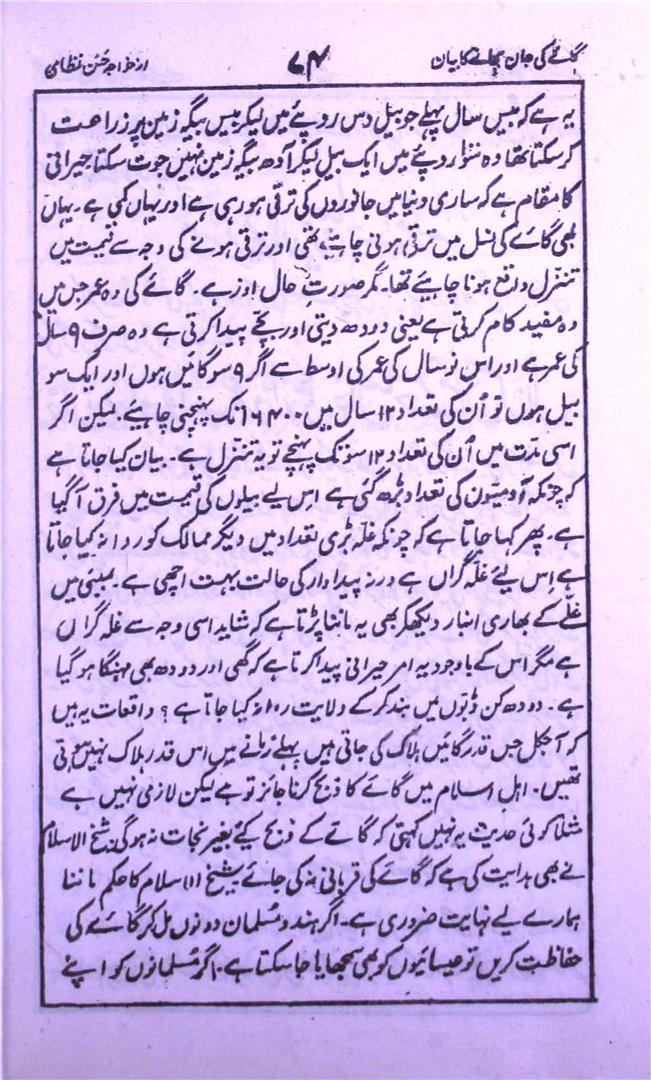 گائے کی جان بچانے کا بیان ۷۴ از خواجہ حسن نظامی
یہ ہے کہ بیس سال پہلے جو بیل دس روپئے میں لیکر بیس بیگہ زمین پر زراعت
کر سکتا تھا وہ سَو روپئے میں ایک بیل لیکر آدھ بیگہ زمین نہیں جوت سکتا حیرانی
کا مقام ہے کہ ساری دنیا میں جانوروں کی ترقی ہو رہی ہے اور یہاں کمی ہے۔ یہاں
بھی گائے کی نسل میں ترقی ہونی چاہیئے تھی اور ترقی ہونے کی وجہ سے قیمت میں
تنزل واقع ہونا چاہیئے تھا۔ مگر صورتِ حال اور ہے۔ گائے کی وہ عمر جس میں
وہ مفید کام کرتی ہے یعنی دودھ دیتی اور بچے پیدا کرتی ہے وہ صرف ۹ سال
کی عمر ہے اور اس نو سال کی عمر کی اوسط سے اگر ۹ سو گائیں ہوں اور ایک سو
بیل ہوں تو اُن کی تعداد ۱۲ سال میں ۱۶۴۰۰ تک پہنچنی چاہیئے۔ لیکن اگر
اسی مدت میں اُن کی تعداد ۱۲ سو تک پہنچے تو یہ تنزل ہے۔ بیان کیا جاتا ہے
کہ چونکہ آدمیوں کی تعداد بڑھ گئی ہے اس لیے بیلوں کی قیمت میں فرق آگیا
ہے۔ پھر کہا جاتا ہے کہ چونکہ غلّہ بڑی تعداد میں دیگر ممالک کو روانہ کیا جاتا
ہے اِس لیئے غلّہ گراں ہے ورنہ پیداوار کی حالت بہت اچھی ہے۔ بمبئی میں
غلّے کے بھاری انبار دیکھکر بھی یہ ماننا پڑتا ہے کہ شاید اسی وجہ سے غلہ گراں
ہے مگر اس کے باوجود یہ امر حیرانی پیدا کرتا ہے کہ گھی اور دودھ بھی مہنگا ہو گیا
ہے۔ دودھ کن ڈبّوں میں بند کر کے ولایت روانہ کیا جاتا ہے؟ واقعات یہ ہیں
کہ آجکل جس قدر گائیں ہلاک کی جاتی ہیں پہلے زمانے میں اس قدر ہلاک نہیں ہوتی
تھیں۔ اہلِ اسلام میں گائے کا ذبح کرنا جائز تو ہے لیکن لازمی نہیں ہے
مثلاً کوئی حدیث یہ نہیں کہتی کہ گائے کے ذبح کیئے بغیر نجات نہ ہوگی۔ شیخ الاسلام
نے بھی ہدایت کی ہے کہ گائے کی قربانی نہ کی جائے۔ شیخ الاسلام کا حکم ماننا
ہمارے لیے نہایت ضروری ہے۔ اگر ہندو مُسلمان دونوں مل کر گائے کی
حفاظت کریں تو عیسائیوں کو بھی سمجھایا جا سکتا ہے۔ اگر مُسلمانوں کو اپنے